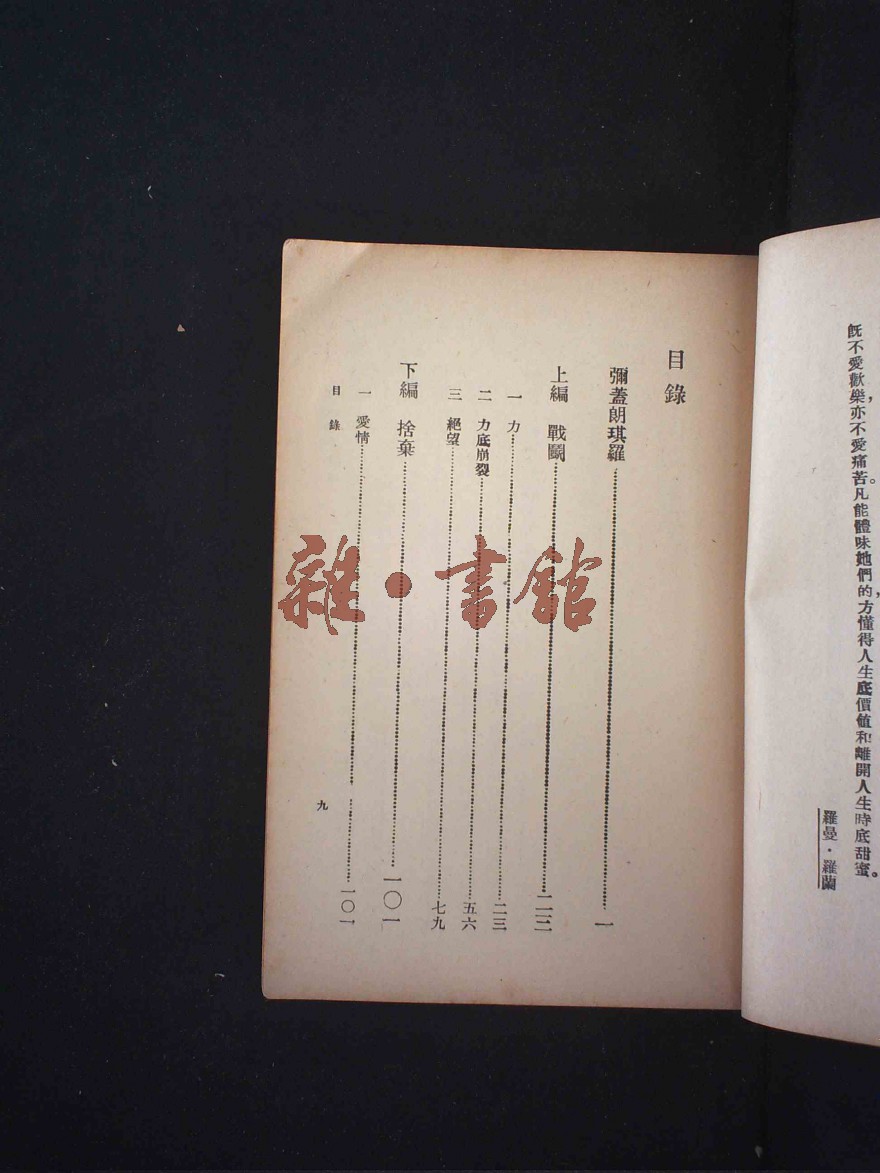 既不愛歡樂，亦不愛痛苦。凡能體味她們的，方懂得人生底價值和離開人生時底甜蜜。
羅曼·羅蘭
目錄
彌蓋朗琪羅……一
上編 戰鬭……二三
一 力……二三
二 力底崩裂……五六
三 絕望……七九
下編 捨棄……一〇一
一 愛情……一〇一
目錄
九
雜·書館